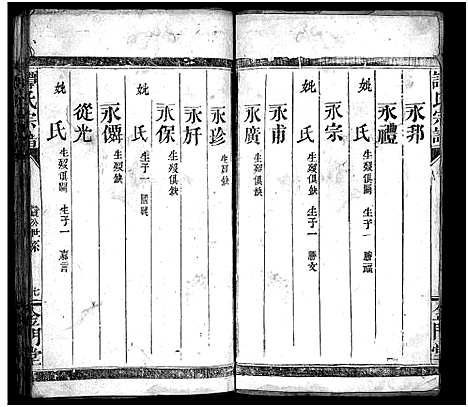 永邦
永禮
妣氏 生歿俱闕 生子一 勝瑶
永宗
妣氏 生歿俱缺 生子一 勝文
永甫
永廣 生歿俱缺
永珍 生歿缺
永好
永保 生歿俱缺
妣氏 生子一 國珖
永儕 生歿缺
從光
妣氏 生歿俱闕 生子一 嘉言
譚氏宗譜
公世系
金門堂